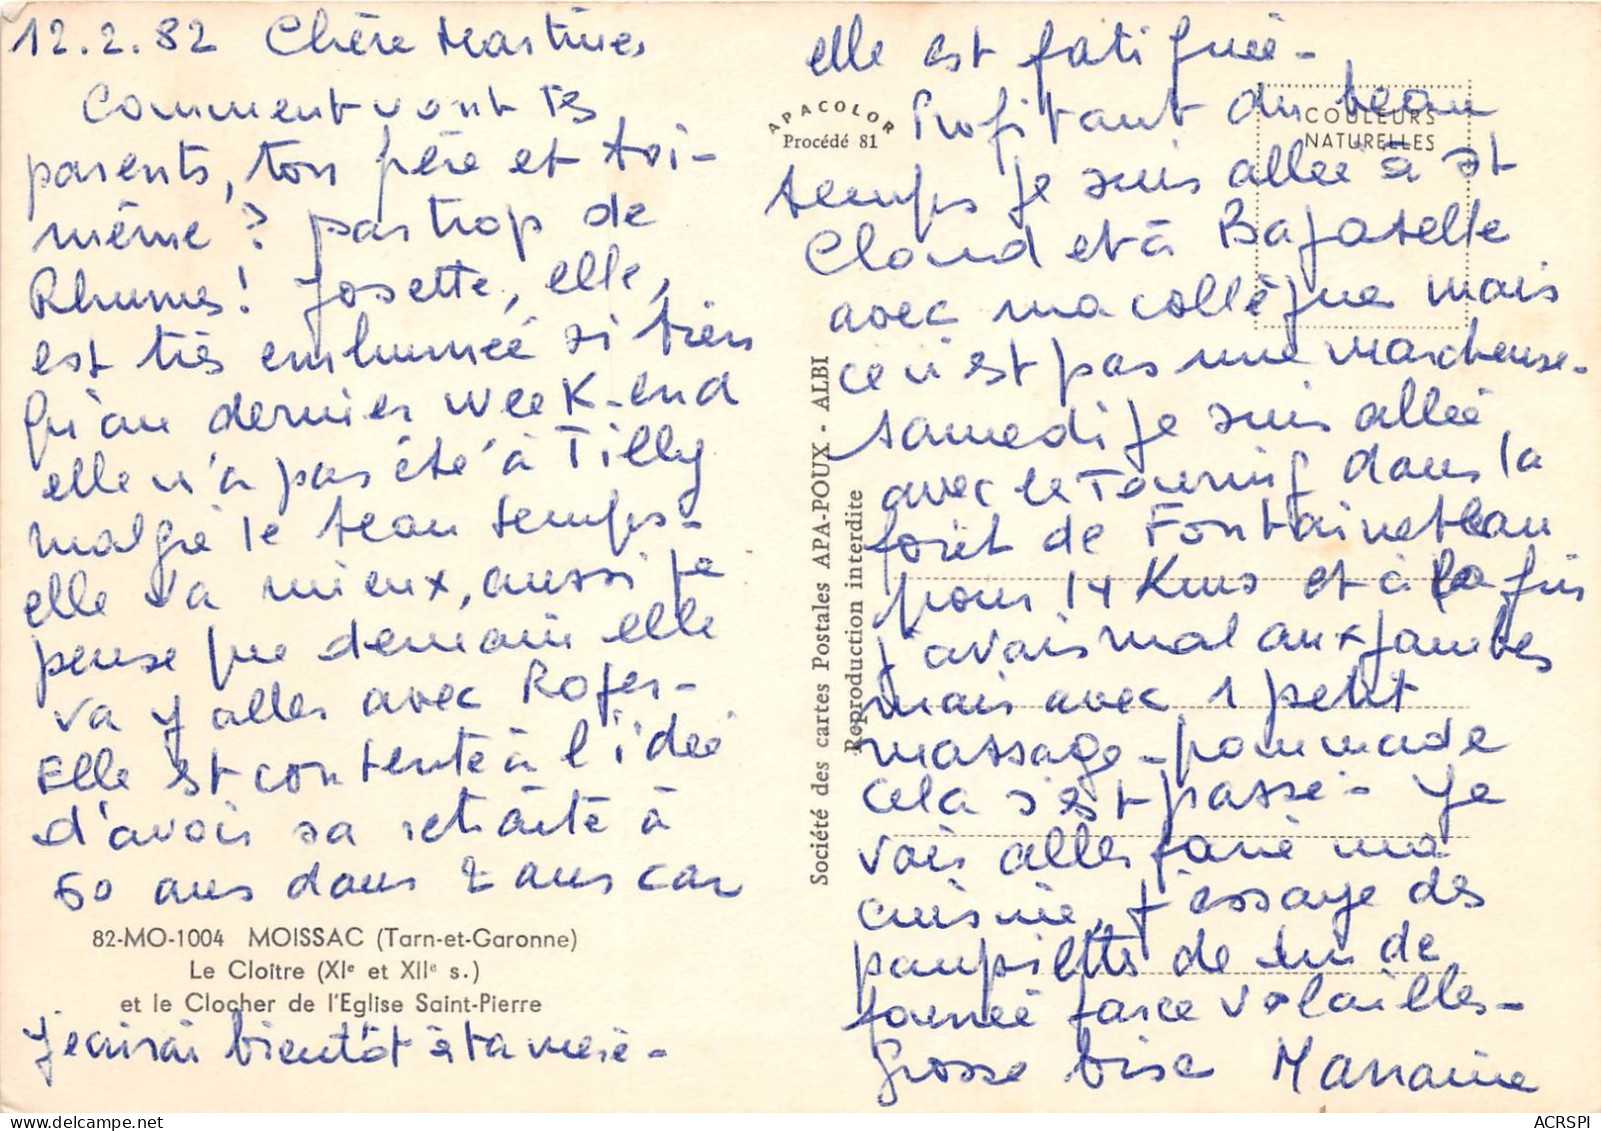 12.2.82 Chère Martine
Comment vont tes
parents, ton père et toi-
même ? pas trop de
Rhumes ! Josette, elle,
est très enrhumée si bien
qu'au dernier week-end
elle n'a pas été à Tilly
malgré le beau temps-
elle va mieux, aussi je
pense que demain elle
va y aller avec Roger-
Elle est contente à l'idée
d'avoir sa retraite à
60 ans dans 2 ans car
82-MO-1004 MOISSAC (Tarn-et-Garonne)
Le Cloître (XIe et XIIe s.)
et le Clocher de l'Eglise Saint-Pierre
J'écrirai bientôt à ta mère-
Société des cartes Postales APA-POUX - ALBI
Reproduction interdite
APACOLOR
Procédé 81
COULEURS
NATURELLES
elle est fatiguée-
Profitant du beau
temps je suis allée à St
Cloud et à Bagatelle
avec ma collègue mais
ce n'est pas une marcheuse-
samedi je suis allée
avec le Touring dans la
forêt de Fontainebleau
pour 14 Kms et à la fin
j'avais mal aux jambes
mais avec 1 petit
massage-pommade
cela s'est passé- Je
vais aller faire ma
cuisine, j'essaye des
paupiettes de
farce volailles-
Grosse bise Marraine
ACRSPI